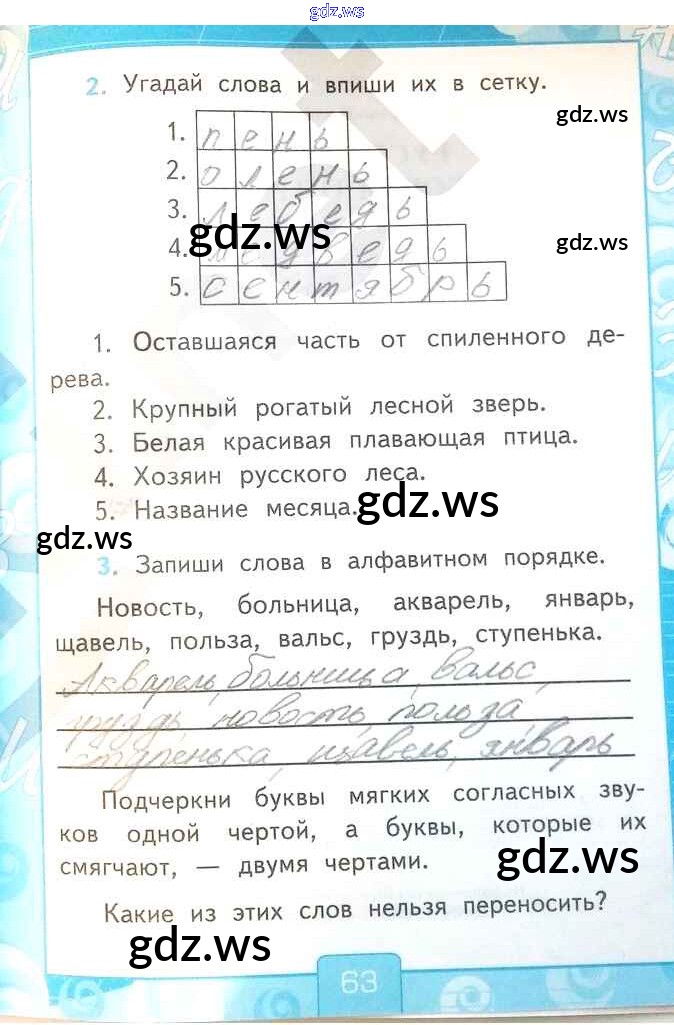 gdz.ws
2. Угадай слова и впиши их в сетку.
gdz.ws
1. пень
2. олень
3. лебедь
gdz.ws
4. медведь
gdz.ws
5. сентябрь
1. Оставшаяся часть от спиленного де-
рева.
2. Крупный рогатый лесной зверь.
3. Белая красивая плавающая птица.
4. Хозяин русского леса.
5. Название месяца.
gdz.ws
gdz.ws
3. Запиши слова в алфавитном порядке.
Новость, больница, акварель, январь,
щавель, польза, вальс, груздь, ступенька.
Акварель, больница, вальс,
груздь, новость, польза
ступенька, щавель, январь
Подчеркни буквы мягких согласных зву-
ков одной чертой, а буквы, которые их
смягчают, — двумя чертами.
gdz.ws
Какие из этих слов нельзя переносить?
gdz.ws
63